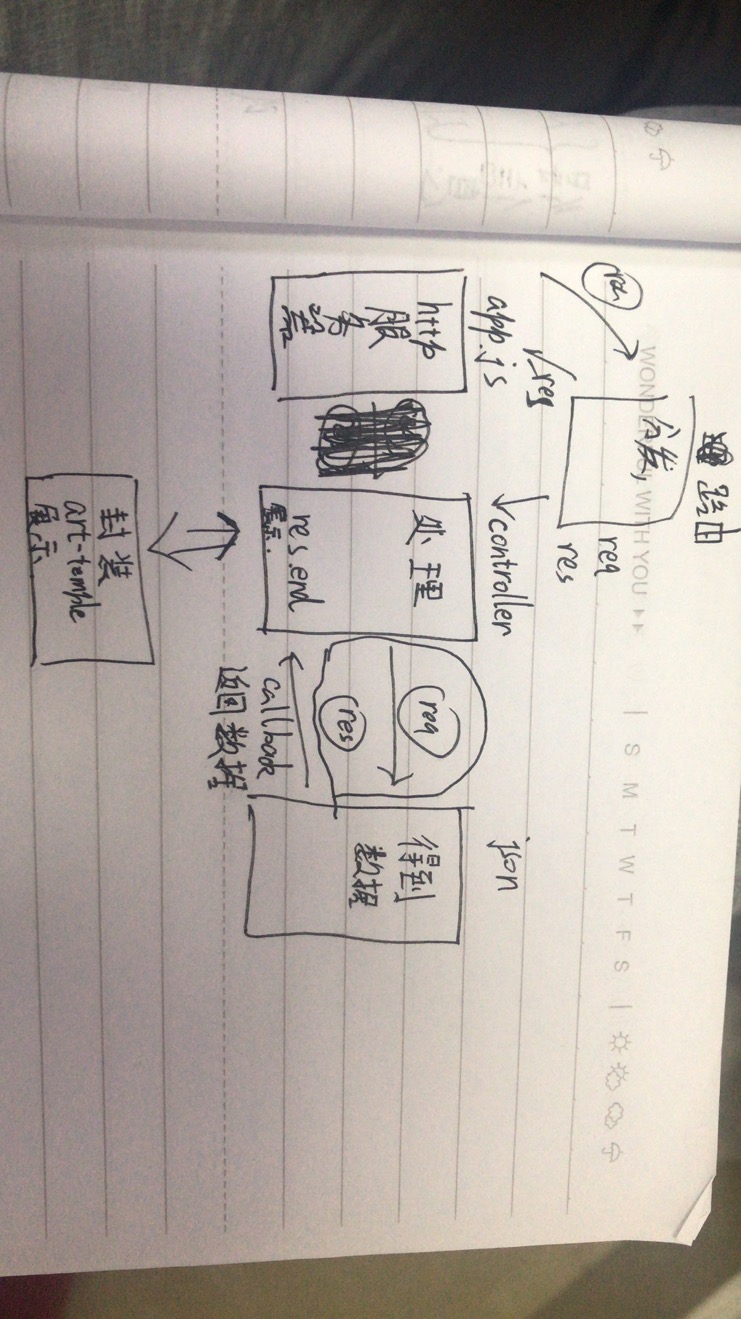 WONDERFUL WITH YOU
S M T W T F S
路由
分发,
req
res
req
res
app.js
http
服务器
controller
处理
res.end
展示.
req
res
callback
返回数据
json
得到
数据
封装
art-temple
展示